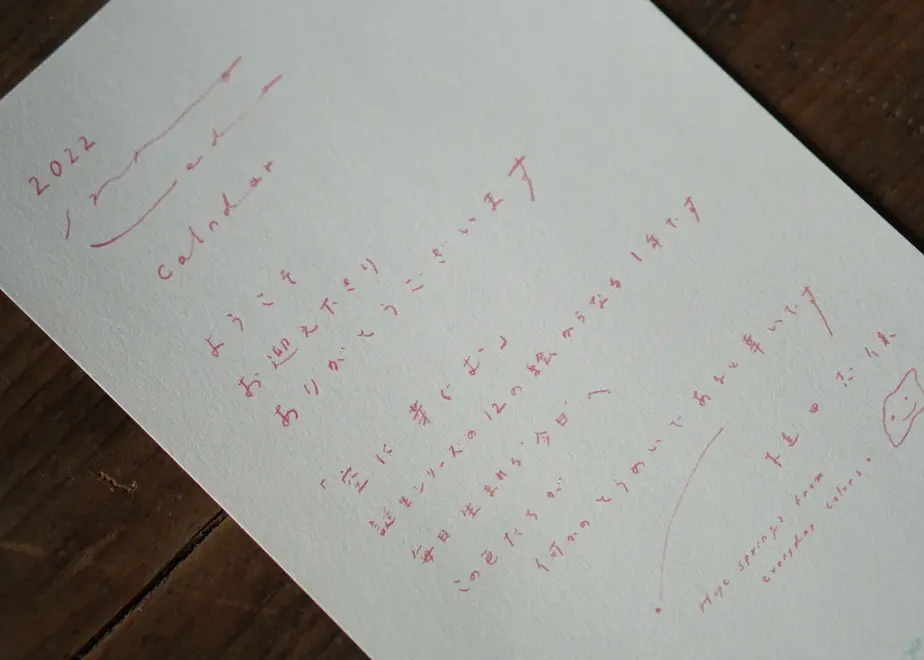 2022
calndar
ようこそ
お迎え下さり
ありがとうございます
「空に芽ぐむ」
誕生シリーズの12の絵からなる1年です
毎日生まれる今日へ
この色たちが
何かのとうめいであると幸いです
Hope springs from
everyday colors.